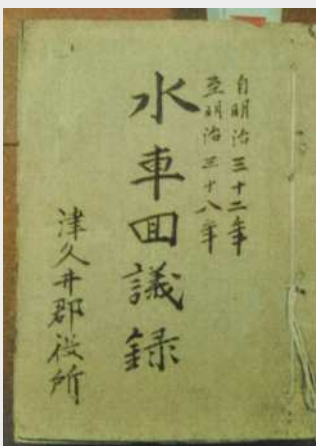 自明治三十二年
至明治三十八年
水車回議録
津久井郡役所